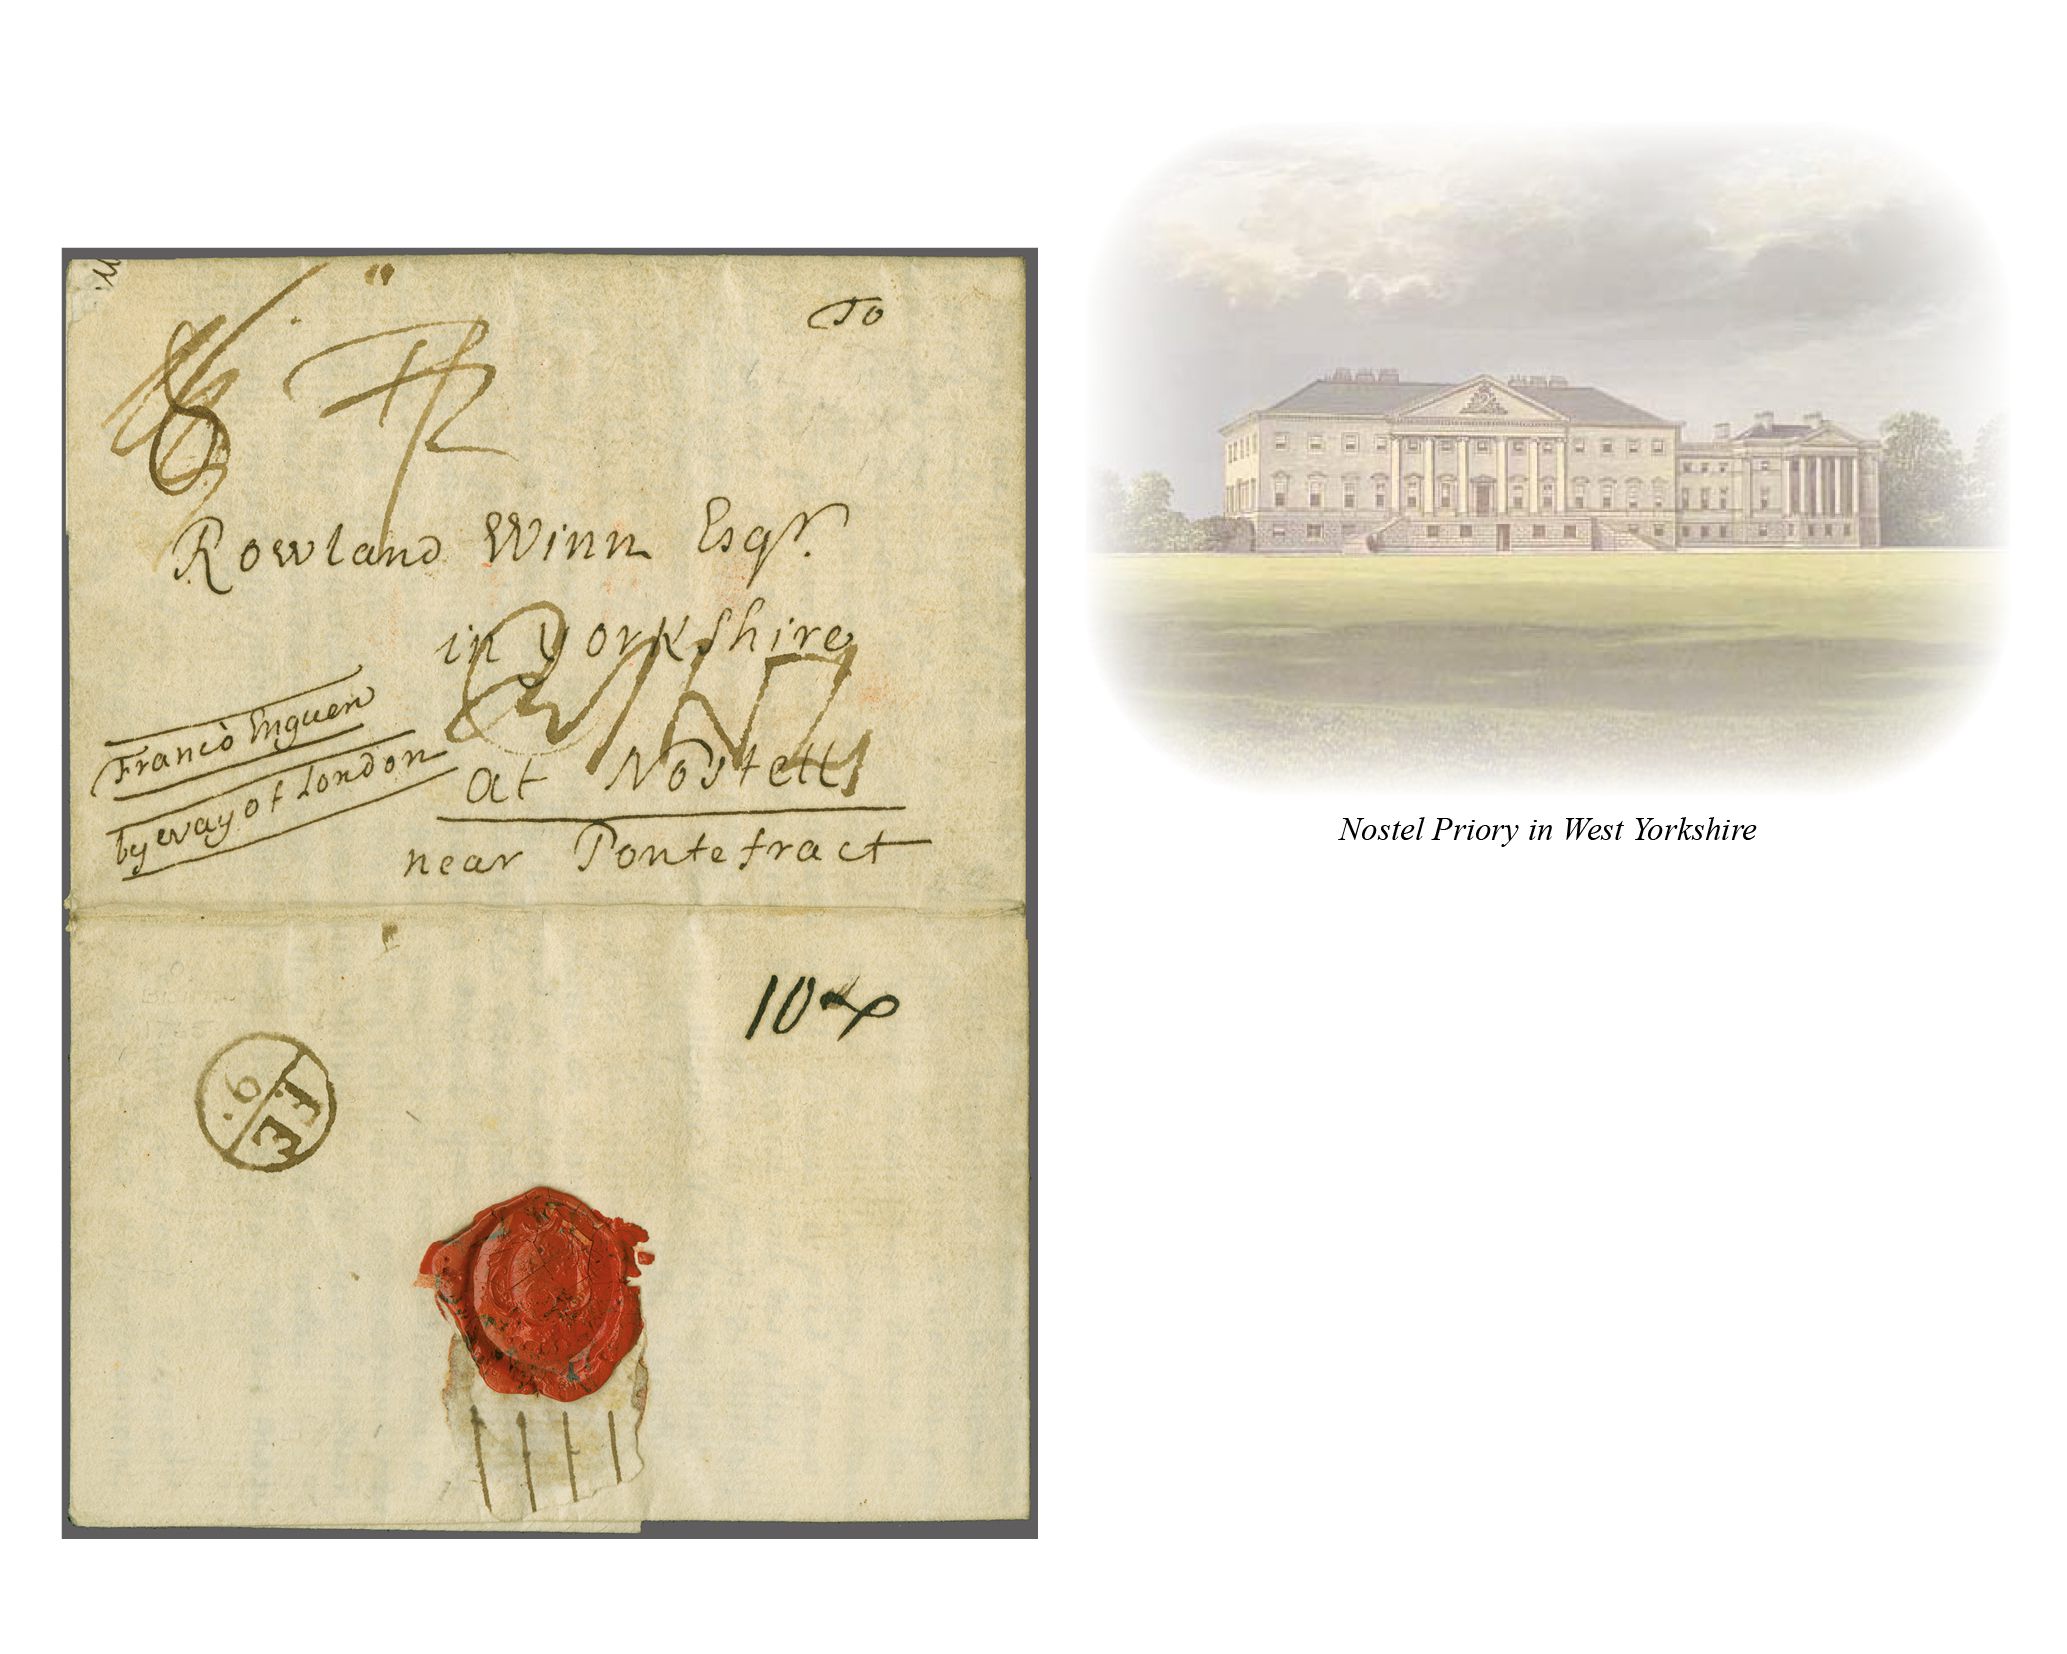 To
8
Rowland Winn Esqr.
in Yorkshire
at Nostell
near Pontefract
Franco Inguen
by way of London
10
9.
FE
Nostel Priory in West Yorkshire